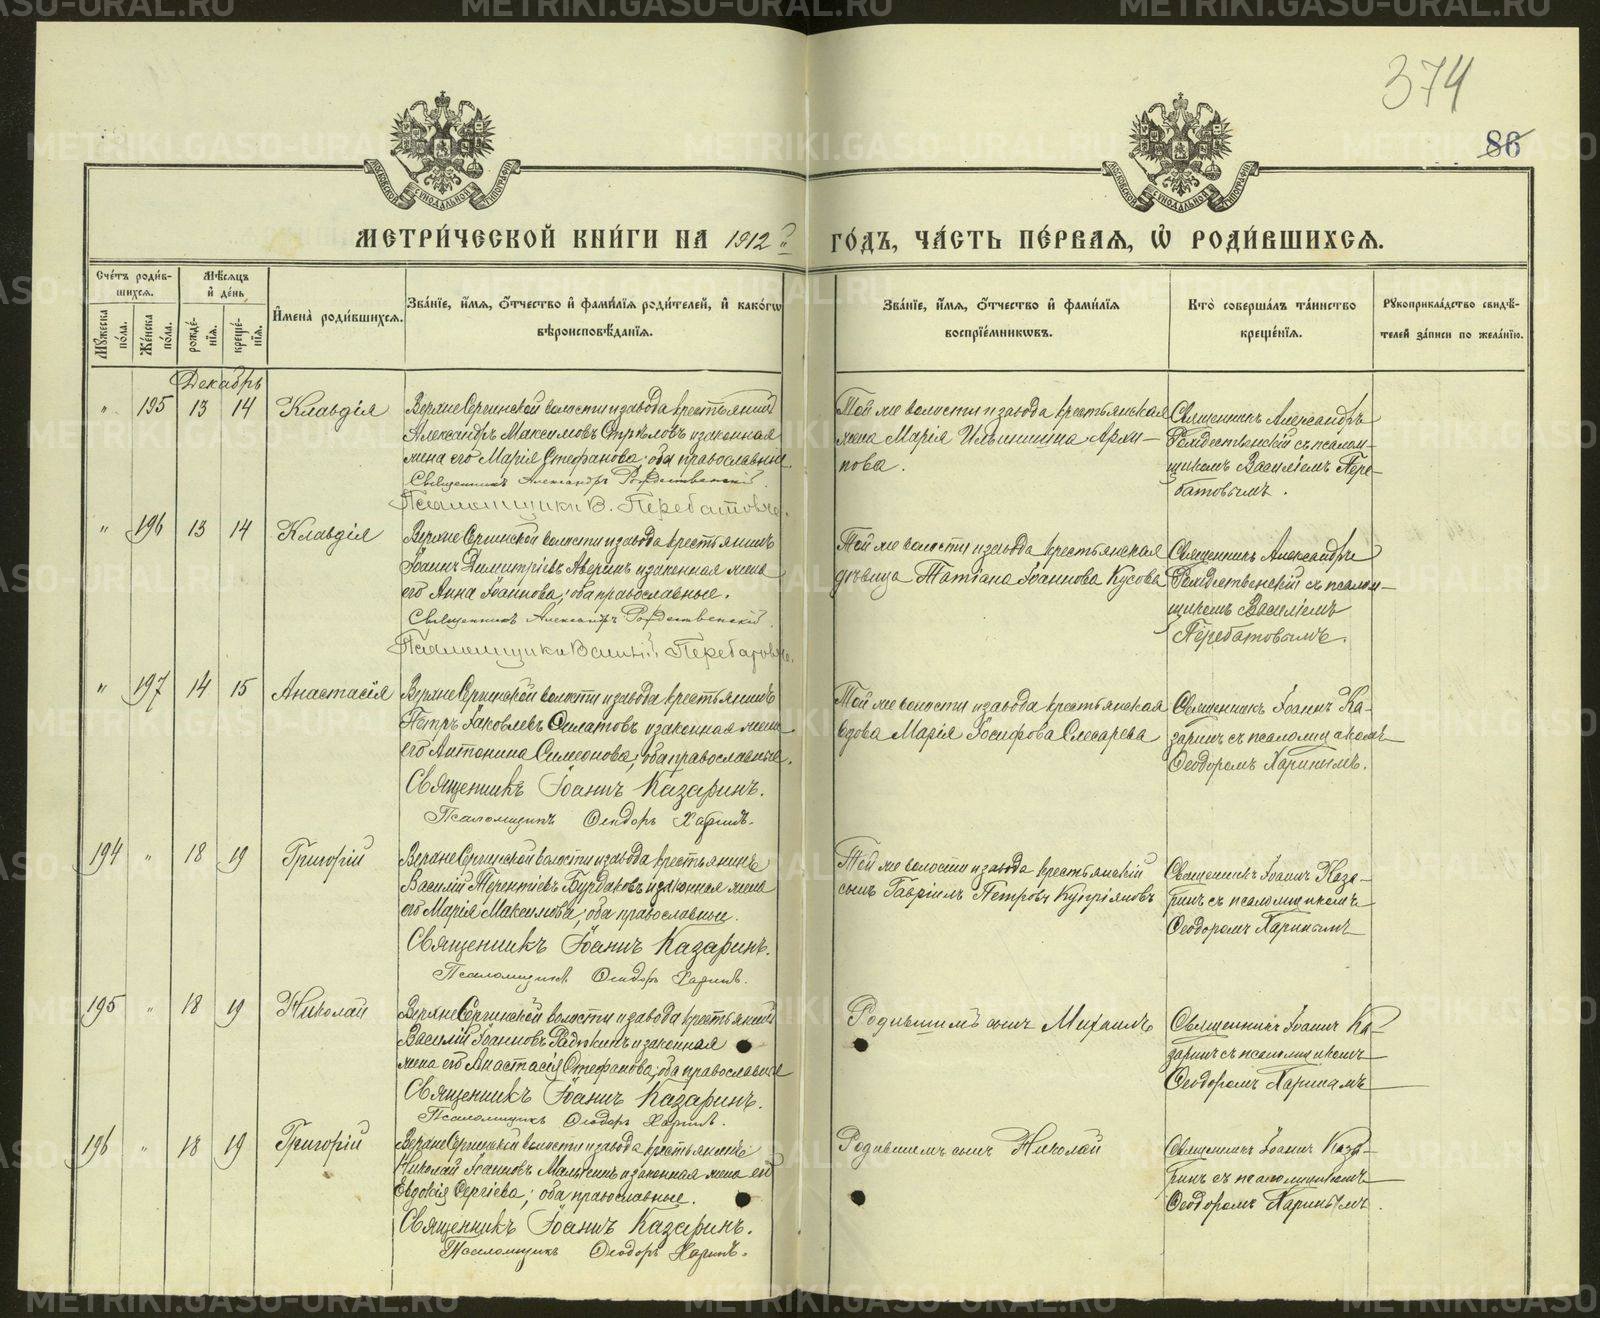 374
86
МОСКОВСКОЙ СѴНОДАЛЬНОЙ ТИПОГРАФІИ
МОСКОВСКОЙ СѴНОДАЛЬНОЙ ТИПОГРАФІИ
МЕТРИ́ЧЕСКОЙ КНИ́ГИ НА 1912 ГО́ДЪ, ЧА́СТЬ ПЕ́РВАѦ, Ѡ РОДИ́ВШИХСѦ.
Сче́тъ роди́в-
шихсѧ.
Мꙋ́жеска по́ла.
Же́нска по́ла.
Мѣ́сѧцъ
и҆ де́нь
рожде́-
нїѧ.
креще́-
нїѧ.
И҆мена̀ роди́вшихсѧ.
Зва́нїе, и҆́мѧ, ѻ҆́тчество и҆ фами́лїѧ роди́телей, и҆ како́гѡ
вѣроисповѣ́данїѧ.
Зва́нїе, и҆́мѧ, ѻ҆́тчество и҆ фами́лїѧ
воспрїе́мникѡвъ.
Кто̀ соверша́лъ та́инство
креще́нїѧ.
Рꙋкоприкла́дство свидѣ́-
телей за́писи по жела́нїю.
Декабрь
" 195 13 14 Клавдія
Верхне Сергинской волости и завода крестьянинъ
Александръ Максимовъ Стрѣловъ и законная
жена его Марія Стефанова; оба православные.
Священникъ Александръ Рождественскій.
Псаломщикъ В. Перебатовъ.
Той же волости и завода крестьянская
жена Марія Ильинична Архи-
пова.
Священникъ Александръ
Рождественскій съ псалом-
щикомъ Василіемъ Пере-
батовымъ.
" 196 13 14 Клавдія
Верхне Сергинской волости и завода крестьянинъ
Іоаннъ Димитріевъ Аверинъ и законная жена
его Анна Іоаннова; оба православные.
Священникъ Александръ Рождественскій.
Псаломщикъ Василій Перебатовъ.
Той же волости и завода крестьянская
дѣвица Татіана Іоаннова Кусова
Священникъ Александръ
Рождественскій съ псалом-
щикомъ Василіемъ
Перебатовымъ.
" 197 14 15 Анастасія
Верхне Сергинской волости и завода крестьянинъ
Петръ Іаковлевъ и законная жена
его Антонина Симеонова; оба православные.
Священникъ Іоаннъ Казаринъ.
Псаломщикъ Ѳеодоръ Харинъ.
Той же волости и завода крестьянская
вдова Марія Іосифова Слесарева
Священникъ Іоаннъ Ка-
заринъ съ псаломщикомъ
Ѳеодоромъ Харинымъ.
194 " 18 19 Григорій
Верхне Сергинской волости и завода крестьянинъ
Василій Терентіевъ Бурдаковъ и законная жена
его Марія Максимова; оба православные.
Священникъ Іоаннъ Казаринъ.
Псаломщикъ Ѳеодоръ Харинъ.
Той же волости и завода крестьянскій
сынъ Гавріилъ Петровъ Купріяновъ
Священникъ Іоаннъ Каза-
ринъ съ псаломщикомъ
Ѳеодоромъ Харинымъ
195 " 18 19 Николай
Верхне Сергинской волости и завода крестьянинъ
Василій Іоанновъ Рѣдькинъ и законная
жена его Анастасія Стефанова; оба православные
Священникъ Іоаннъ Казаринъ.
Псаломщикъ Ѳеодоръ Харинъ.
Родившимъ сынъ Михаилъ
Священникъ Іоаннъ Ка-
заринъ съ псаломщикомъ
Ѳеодоромъ Харинымъ
196 " 18 19 Григорій
Верхне Сергинской волости и завода крестьянинъ
Николай Іоанновъ и законная жена его
Евдокія Сергіева; оба православные.
Священникъ Іоаннъ Казаринъ.
Псаломщикъ Ѳеодоръ Харинъ.
Родившимъ сынъ Николай
Священникъ Іоаннъ Каза-
ринъ съ псаломщикомъ
Ѳеодоромъ Харинымъ.
METRIKI.GASO-URAL.RU